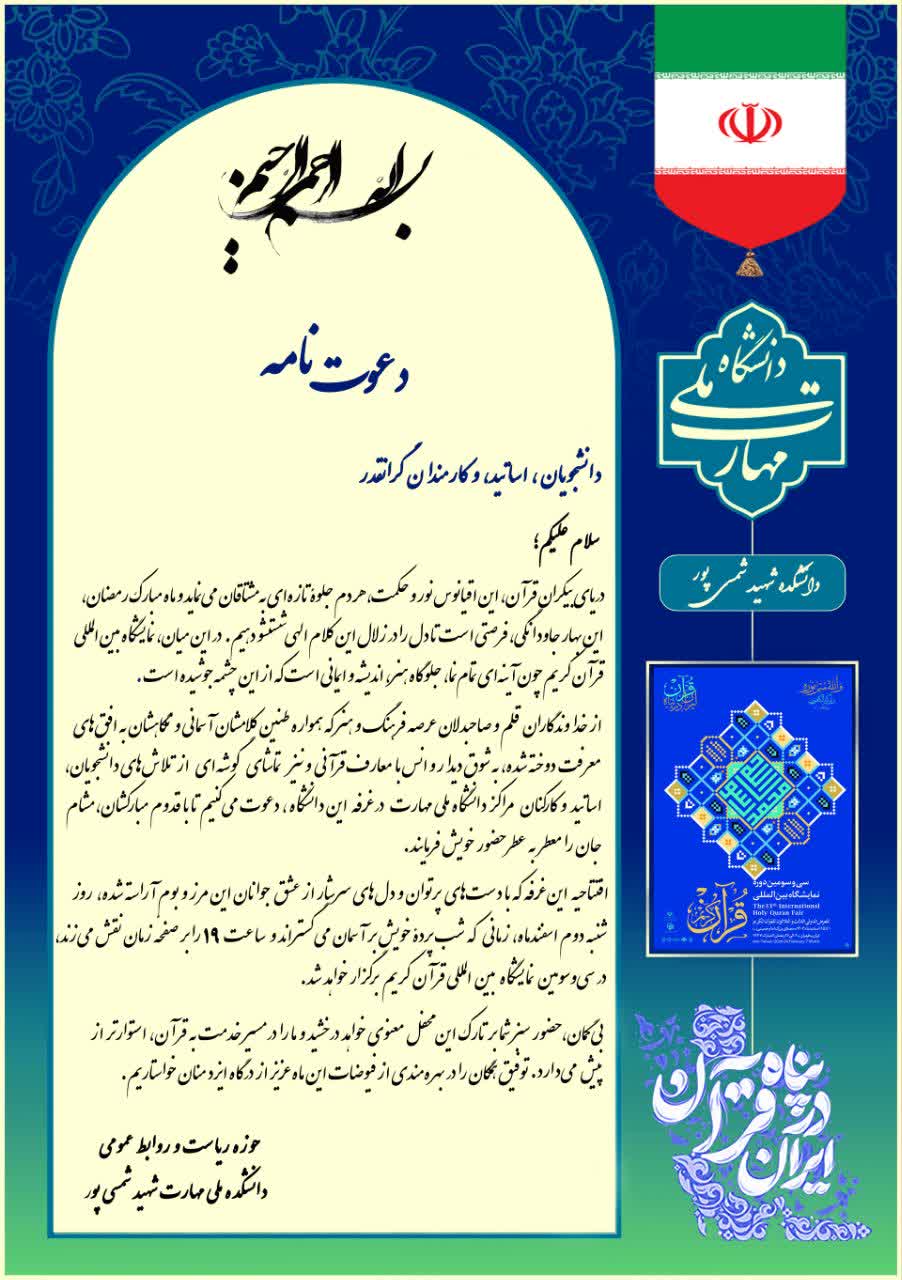 بسم الله الرحمن الرحیم
دعوت نامه
دانشجویان، اساتید، و کارمندان گرانقدر
سلام علیکم؛
دریای بیکران قرآن، این اقیانوس نور و حکمت، هر دم جلوهٔ تازه ای به مشتاقان می نماید و ماه مبارک رمضان،
این بهار جاودانگی، فرصتی است تا دل را در زلال این کلام الهی شستشو دهیم. در این میان، نمایشگاه بین المللی
قرآن کریم چون آینه ای تمام نما، جلوگاه هنر، اندیشه و ایمانی است که از این چشمه جوشیده است.
از خداوندگاران قلم و صاحبدلان عرصه فرهنگ و هنر که همواره طنین کلامشان آسمانی و نگاهشان به افق های
معرفت دوخته شده، به شوق دیدار و انس با معارف قرآنی و نیز تماشای گوشه ای از تلاش های دانشجویان،
اساتید و کارکنان مراکز دانشگاه ملی مهارت در غرفه این دانشگاه، دعوت می کنیم تا با قدوم مبارکشان، مشام
جان را معطر به عطر حضور خویش فرمایند.
افتتاحیه این غرفه که با دست های پرتوان و دل های سرشار از عشق جوانان این مرز و بوم آراسته شده، روز
شنبه دوم اسفندماه، زمانی که شب پردهٔ خویش بر آسمان می گستراند و ساعت ۱۹ را بر صفحه زمان نقش می زند،
در سی و سومین نمایشگاه بین المللی قرآن کریم برگزار خواهد شد.
بی گمان، حضور سبز شما بر تارک این محفل معنوی خواهد درخشید و ما را در مسیر خدمت به قرآن، استوارتر از
پیش می دارد. توفیق همگان را در بهره مندی از فیوضات این ماه عزیز از درگاه ایزد منان خواستاریم.
حوزه ریاست و روابط عمومی
دانشکده ملی مهارت شهید شمسی پور
دانشگاه
ملی
مهارت
دانشکده شهید شمسی پور
سی و سومین دوره
نمایشگاه بین المللی
The 33rd International
Holy Quran Fair
قرآن کریم
ایران در پناه قرآن